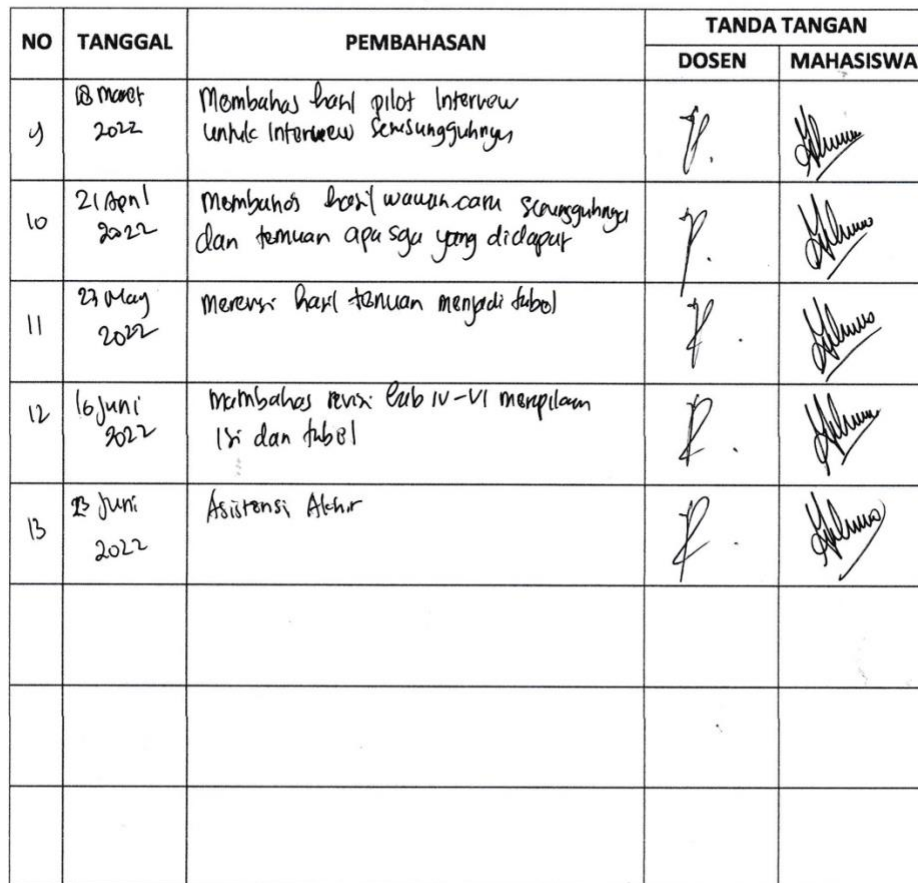 NO TANGGAL PEMBAHASAN TANDA TANGAN
DOSEN MAHASISWA
9 18 Maret Membahas hasil pilot Interview
2022 untuk Interview Sesungguhnya
10 21 April Membahas hasil wawancara Sesungguhnya
2022 dan temuan apa saja yang didapat
11 May merevisi hasil temuan menjadi tabel
2022
12 16 Juni membahas revisi bab IV-VI
2022 Isi dan tabel
13 Juni Asistensi Akhir
2022